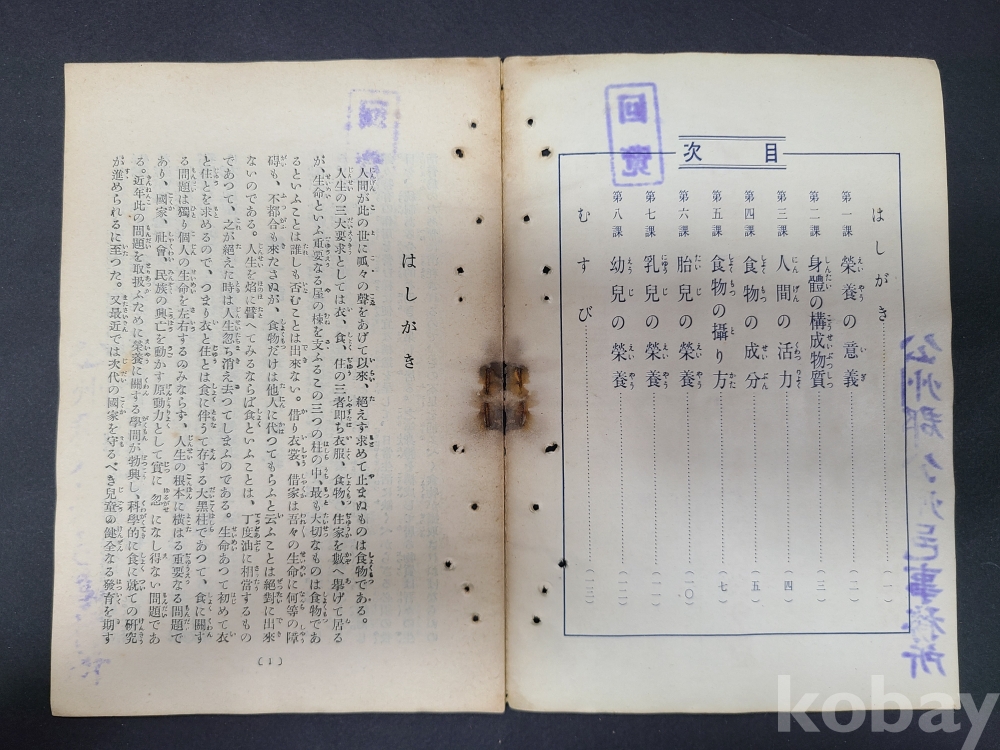 目次
はしがき……（一）
第一課 榮養の意義……（二）
第二課 身體の構成物質……（三）
第三課 人間の活力……（四）
第四課 食物の成分……（五）
第五課 食物の攝り方……（七）
第六課 胎兒の榮養……（一〇）
第七課 乳兒の榮養……（一一）
第八課 幼兒の榮養……（一二）
むすび……（一三）
回覽
公州郡公州邑事務所
はしがき
人間が此の世に呱々の聲をあげて以來、絕えず求めて止まぬものは食物である。
人生の三大要求としては衣、食、住の三者卽ち衣服、食物、住家を數へ擧げて居る
が、生命といふ重要なる屋の棟を支ふるこの三つの柱の中、最も大切なものは食物であ
るといふことは誰しも否むことは出來ない。借り衣裳、借家は吾々の生命に何等の障
碍も、不都合も來たさぬが、食物だけは他人に代つてもらふと云ふことは絕對に出來
ないのである。人生を焰に譬へてみるならば食といふことは、丁度油に相當するもの
であつて、之が絕えた時は人生忽ち消え去つてしまふのである。生命あつて初めて衣
と住とを求めるので、つまり衣と住とは食に伴うて存する大黑柱であつて、食に關す
る問題は獨り個人の生命を左右するのみならず、人生の根本に橫はる重要なる問題で
あり、國家、社會、民族の興亡を動かす原動力として實に忽になし得ない問題であ
る。近年此の問題を取扱ふために榮養に關する學問が勃興し、科學的に食に就ての硏究
が進められるに至つた。又最近では次代の國家を守るべき兒童の健全なる發育を期す
(1)
kobay